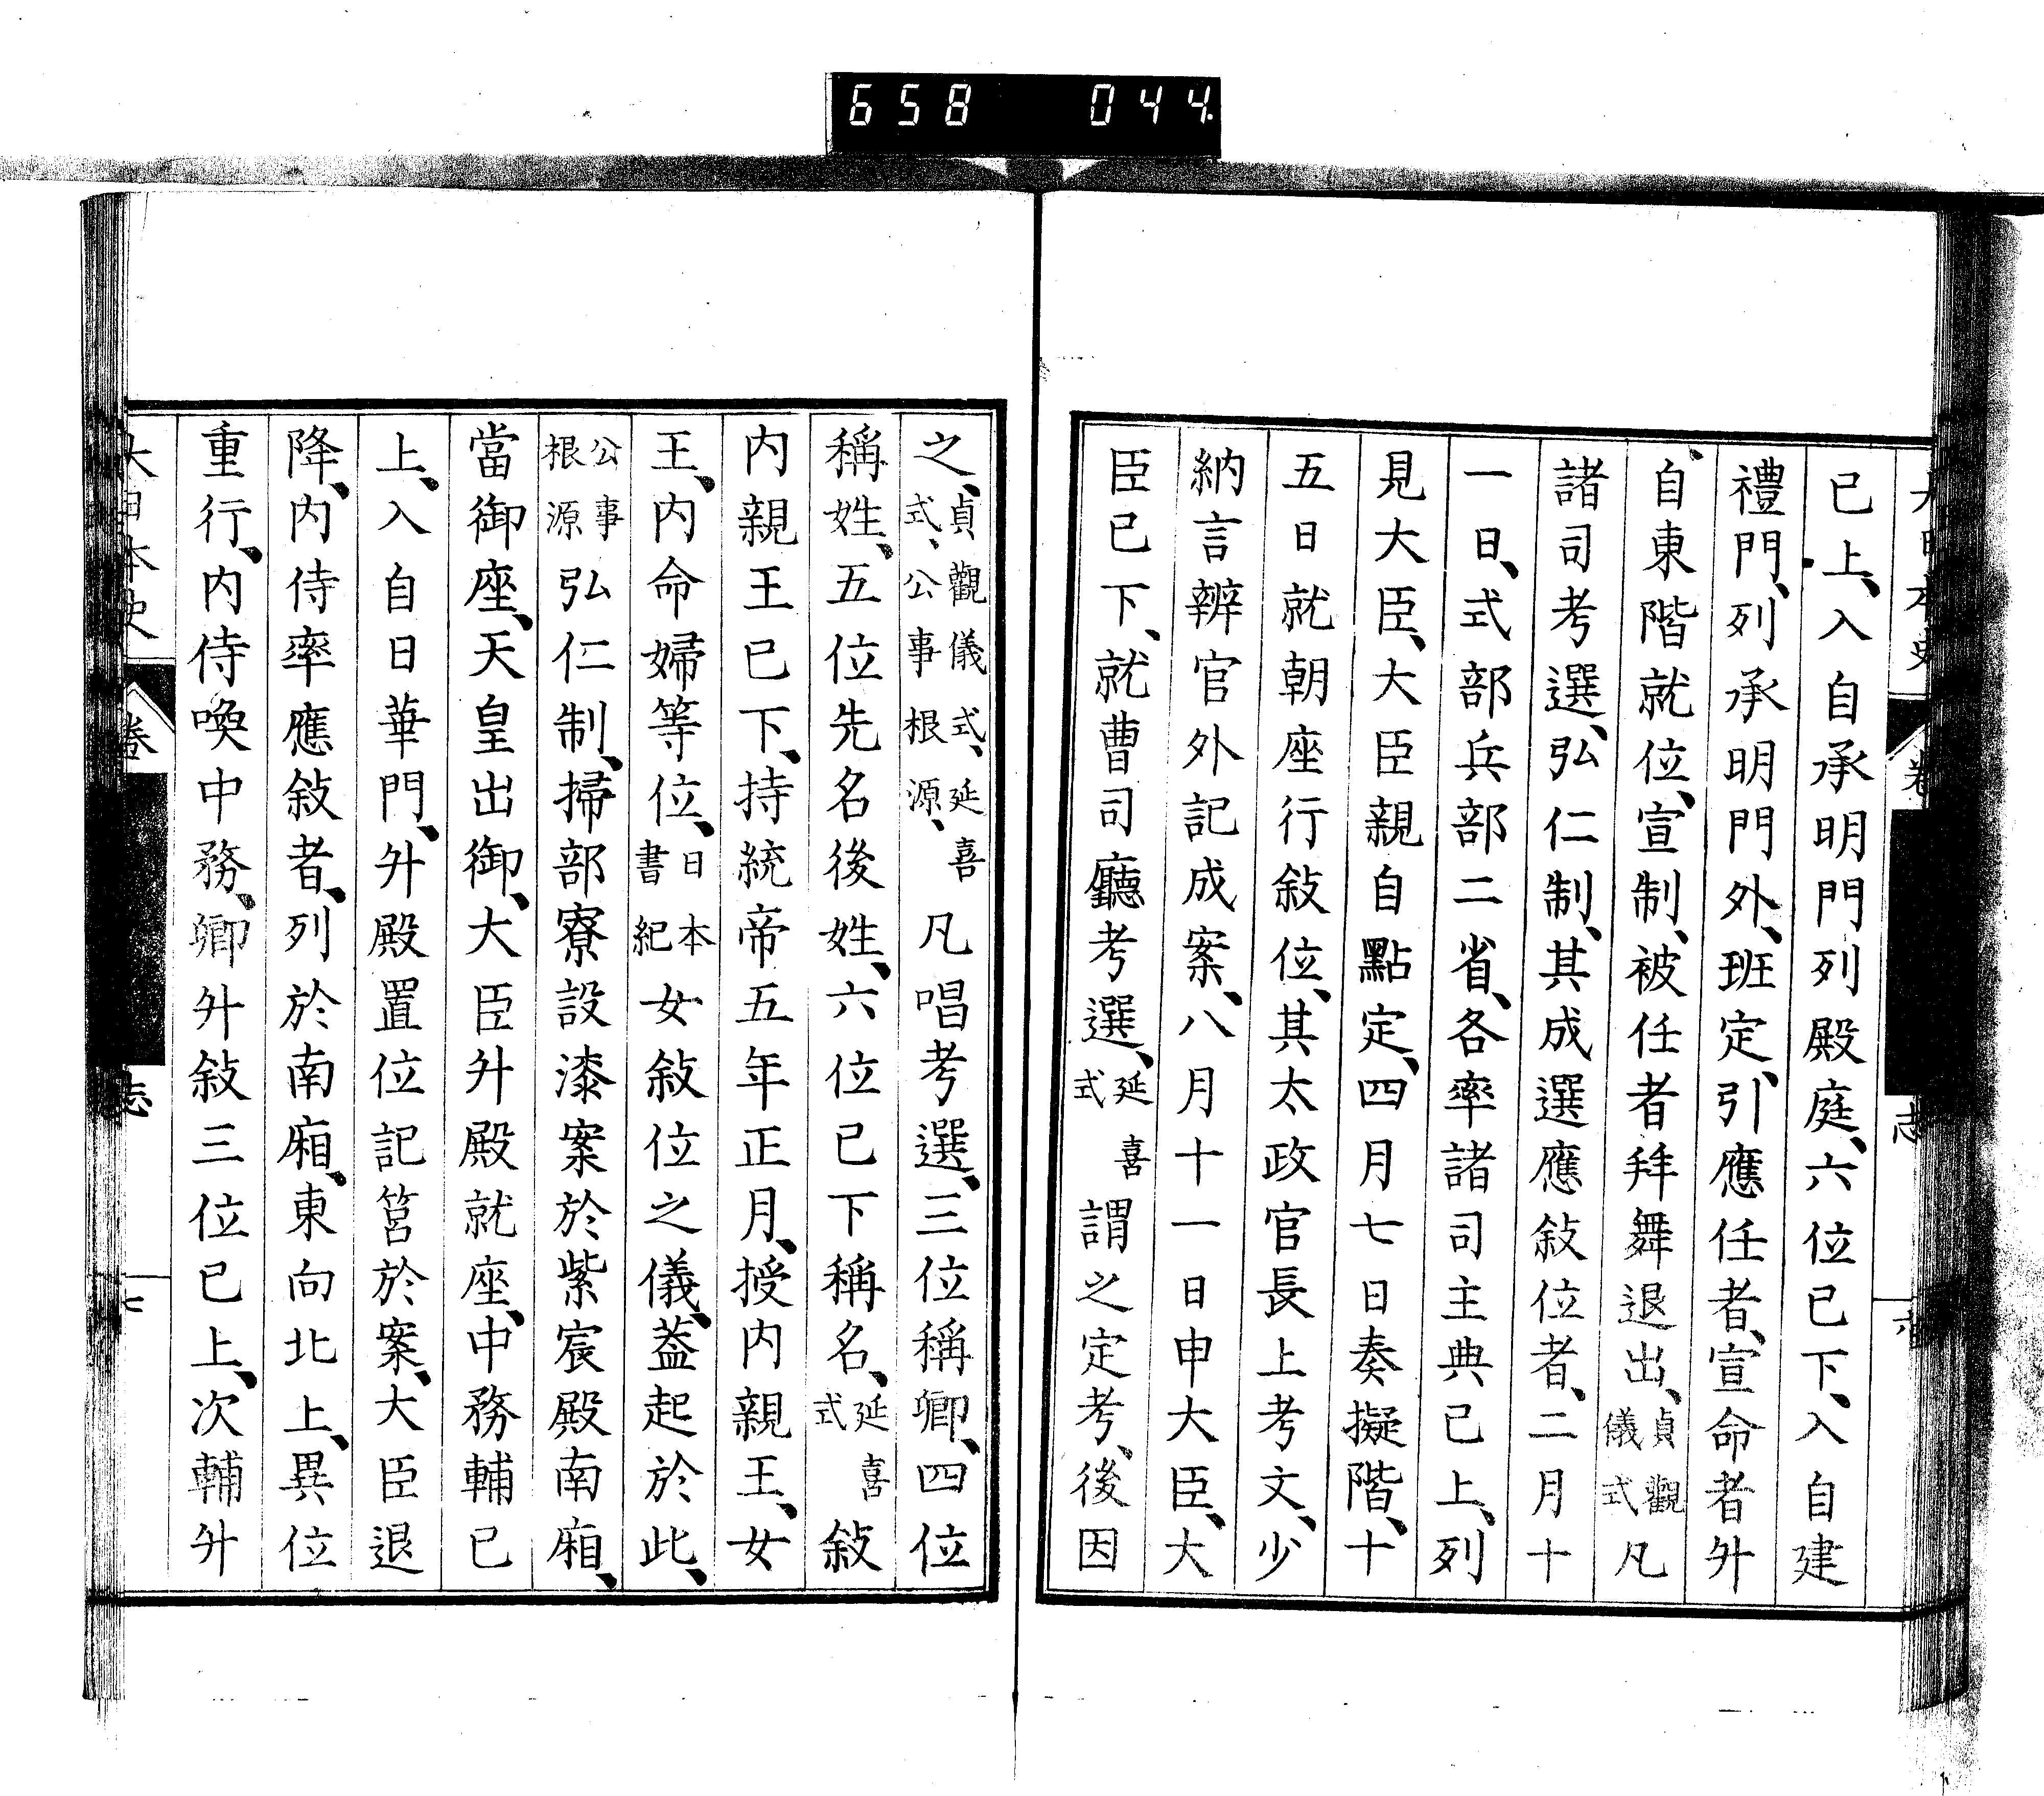 658 044
已上、入自承明門列殿庭、六位已下、入自建
禮門、列承明門外、班定、引應任者、宣命者升
自東階就位、宣制、被任者拜舞退出、貞觀儀式凡
諸司考選、弘仁制、其成選應敍位者、二月十
一日、式部兵部二省、各率諸司主典已上、列
見大臣、大臣親自點定、四月七日奏擬階、十
五日就朝座行敍位、其太政官長上考文、少
納言辨官外記成案、八月十一日申大臣、大
臣已下、就曹司廳考選、延喜式謂之定考、後因
之、貞觀儀式、延喜式、公事根源、凡唱考選、三位稱卿、四位
稱姓、五位先名後姓、六位已下稱名、延喜式敍
内親王已下、持統帝五年正月、授内親王、女
王、内命婦等位、日本書紀女敍位之儀、蓋起於此、
公事根源弘仁制、掃部寮設漆案於紫宸殿南廂、
當御座、天皇出御、大臣升殿就座、中務輔已
上、入自日華門、升殿置位記筥於案、大臣退
降、内侍率應敍者、列於南廂、東向北上、異位
重行、内侍喚中務、卿升敍三位已上、次輔升
大日本史 卷 志 七